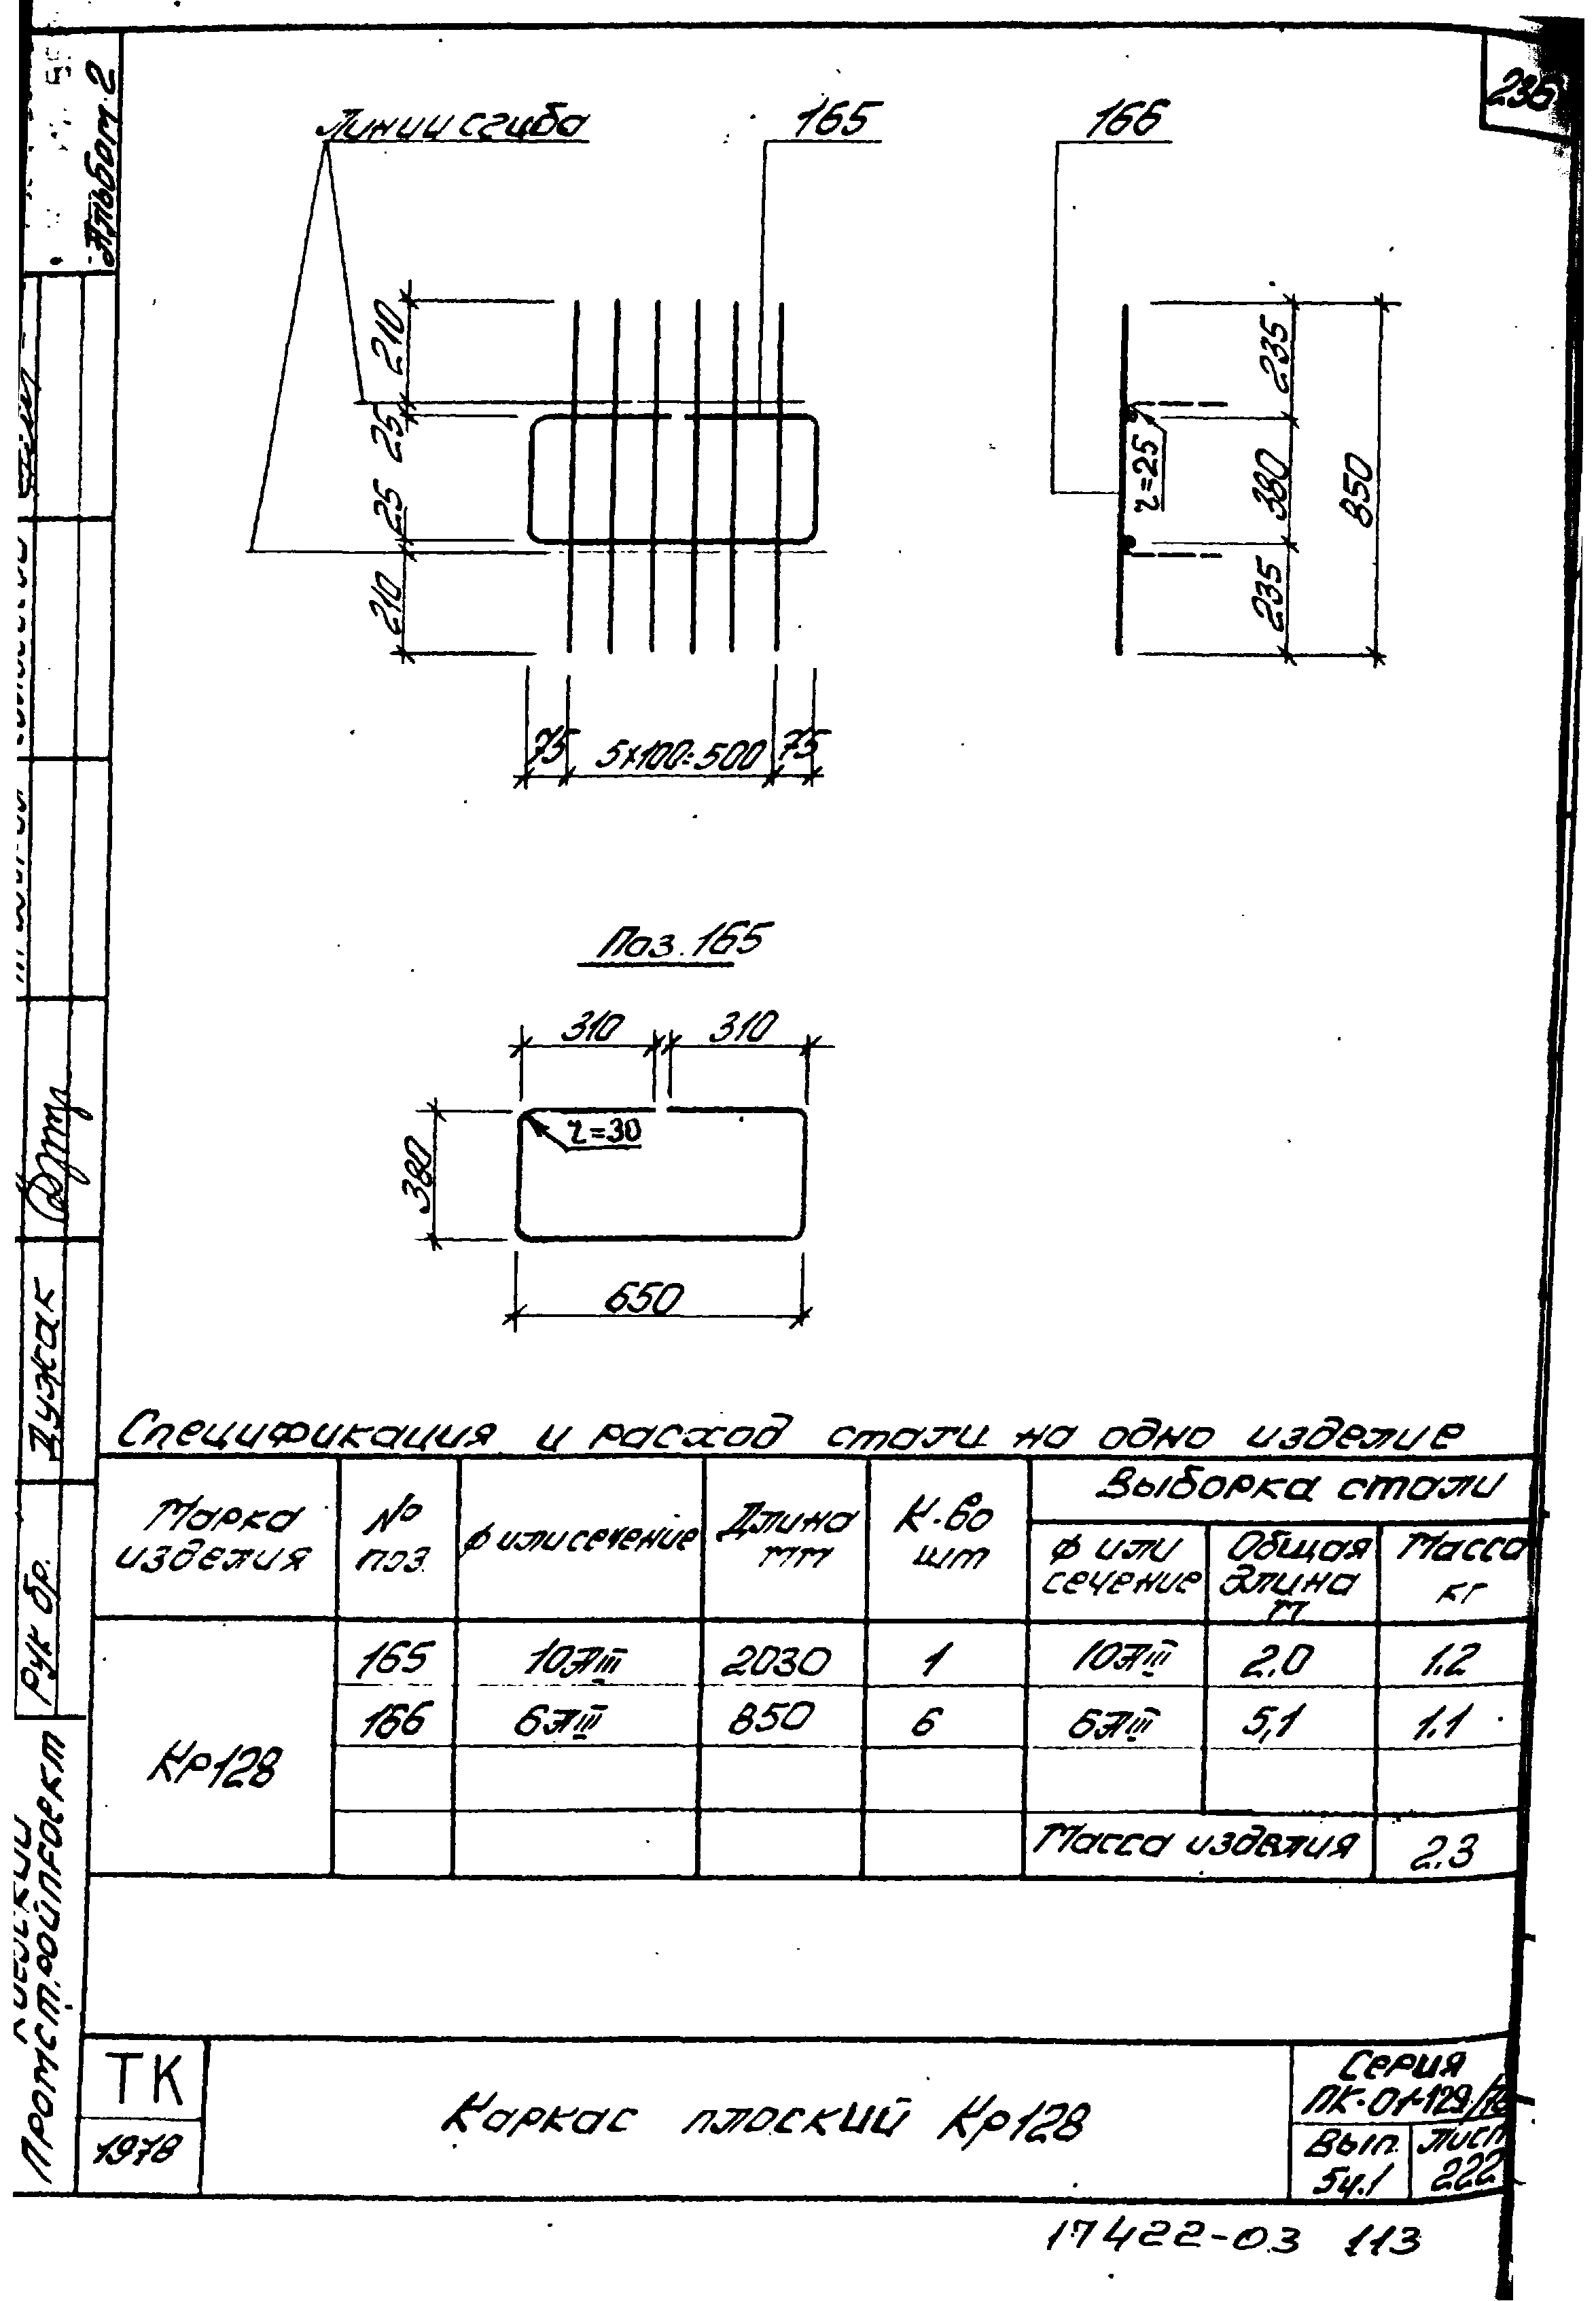 Альбом 2
236
Линии сгиба
165
166
210
25
25
210
75
5х100=500
75
235
380
235
850
r=25
Поз. 165
310
310
r=30
380
650
Дужак
Рук бр.
Промстройпроект
Спецификация и расход стали на одно изделие
Марка изделия
№ поз.
Ф или сечение
Длина мм
К-во шт
Выборка стали
Ф или сечение
Общая длина м
Масса кг
Кр128
165 10АIII 2030 1 10АIII 2.0 1.2
166 6АIII 850 6 6АIII 5,1 1.1
Масса изделия 2.3
ТК
1978
Каркас плоский Кр128
Серия
ПК-01-129/78
Вып.
5ч.1
Лист
222
17422-03 113